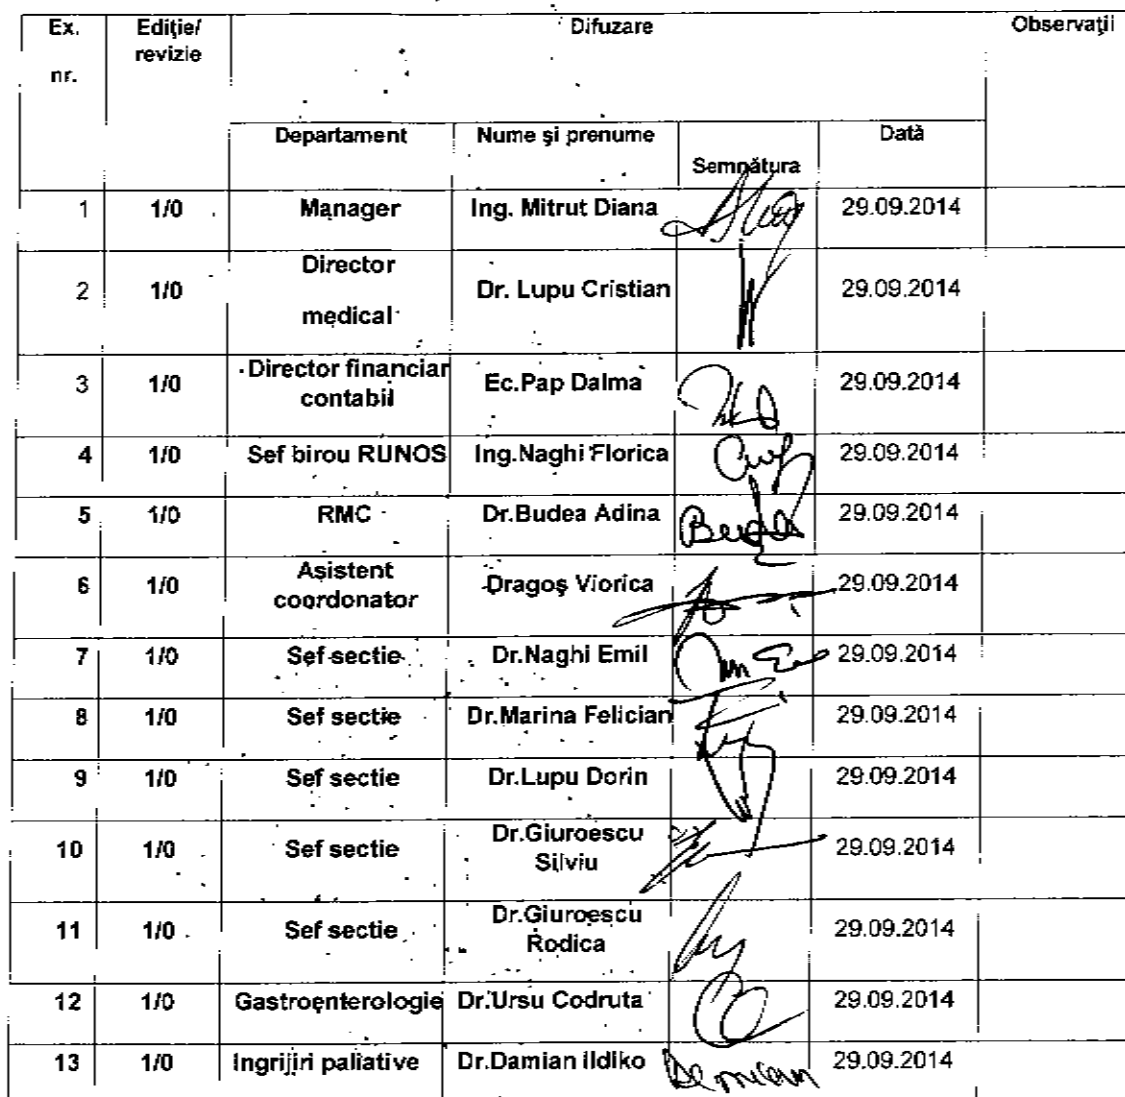 Ex. nr. Ediţie/ revizie Difuzare Observaţii
Departament Nume şi prenume Semnătura Dată
1 1/0 Manager Ing. Mitrut Diana 29.09.2014
2 1/0 Director medical Dr. Lupu Cristian 29.09.2014
3 1/0 Director financiar contabil Ec.Pap Dalma 29.09.2014
4 1/0 Sef birou RUNOS Ing.Naghi Florica 29.09.2014
5 1/0 RMC Dr.Budea Adina Budea 29.09.2014
6 1/0 Asistent coordonator Dragoş Viorica 29.09.2014
7 1/0 Sef sectie Dr.Naghi Emil 29.09.2014
8 1/0 Sef sectie Dr.Marina Felician 29.09.2014
9 1/0 Sef sectie Dr.Lupu Dorin 29.09.2014
10 1/0 Sef sectie Dr.Giuroescu Silviu 29.09.2014
11 1/0 Sef sectie Dr.Giuroescu Rodica 29.09.2014
12 1/0 Gastroenterologie Dr.Ursu Codruta 29.09.2014
13 1/0 Ingrijiri paliative Dr.Damian Ildiko Damian 29.09.2014